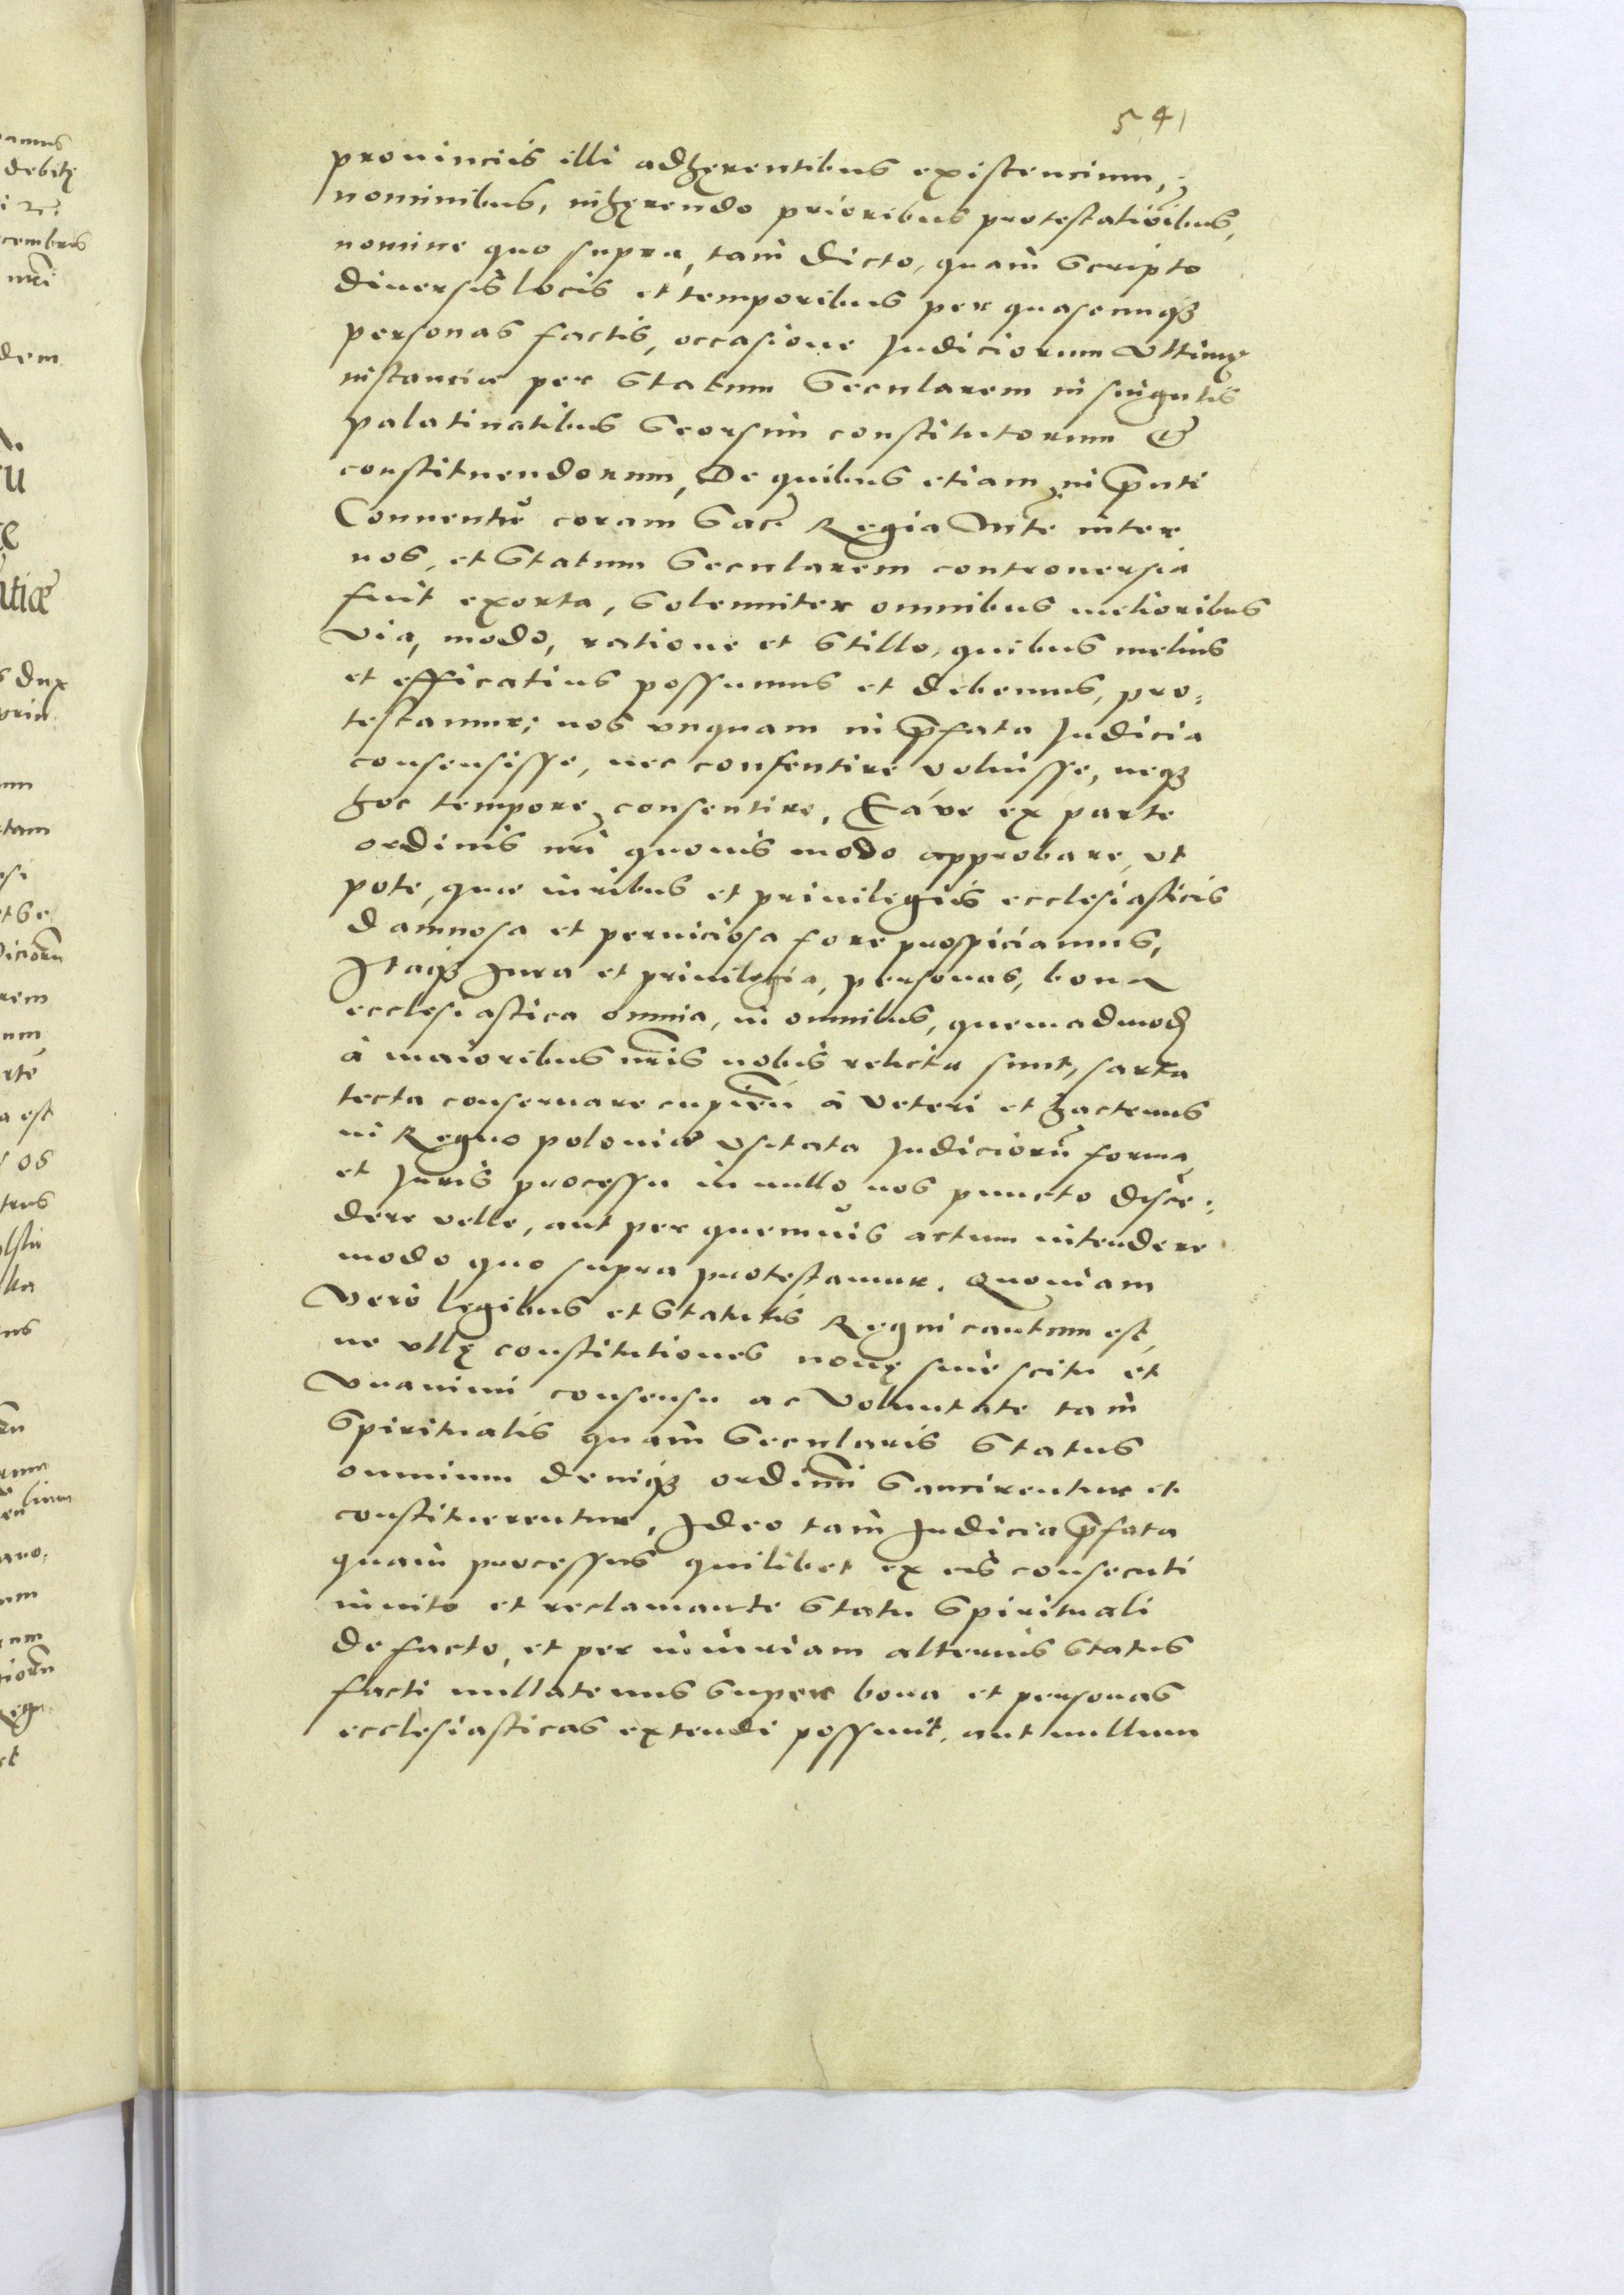 541
prouinciis illi adhęrentibus existencium,
nominibus, inhęrendo prioribus protestatioibus,
nomine quo supra, tam dicto, quam scripto
diuersis locis et temporibus per quascunqꝫ
personas factis, occasione Judiciorum vltimę
instanciæ per Statum Secularem in singulis
palatinatibus Seorsim constitutorum &
constituendorum, De quibus etiam in pñti
Conuentu coram Sacr Regia Mte inter
nos, et Statum Secularem controuersia
fuit exorta, Solenniter omnibus melioribus
via, modo, ratione et Stillo, quibus melius
et efficatius possumus et debemus, pro:
testamur; nos vnquam in p̃fata Judicia
consensisse, nec consentire voluisse, neqꝫ
hoc tempore consentire, Eáve ex parte
ordinis nri quouis modo approbare, vt
pote, quæ iuribus et priuilegiis ecclesiasticis
damnosa et perniciosa fore prospiciamus,
Itaqꝫ Jura et priuilegia, personas, bona
ecclesiastica omnia, in omnibus, quemadmod
à maioribus nris nobis relicta sunt, sarta
tecta conseruare cupien à veteri et hactenus
in Regno poloniæ vsitata Judicioru forma,
et Juris processu in nullo nos puncto disce:
dere velle, aut per quemuis actum intendere
modo quo supra protestamur. Quoniam
vero legibus et Statutis Regni cautum est,
ne vllę constitutiones nouę sine scitu et
vnanimi consensu ac voluntate tam
Spiritualis quam Secularis Status
omnium deniqꝫ ordinu Sancirentur et
constituerentur, Ideo tam Judicia p̃fata
quam processus quilibet ex eis consecuti
inuito et reclamante Statu Spirituali
de facto, et per iniuriam alterius Status
facti nullatenus Super bona et personas
ecclesiasticas extendi possunt, aut nullum